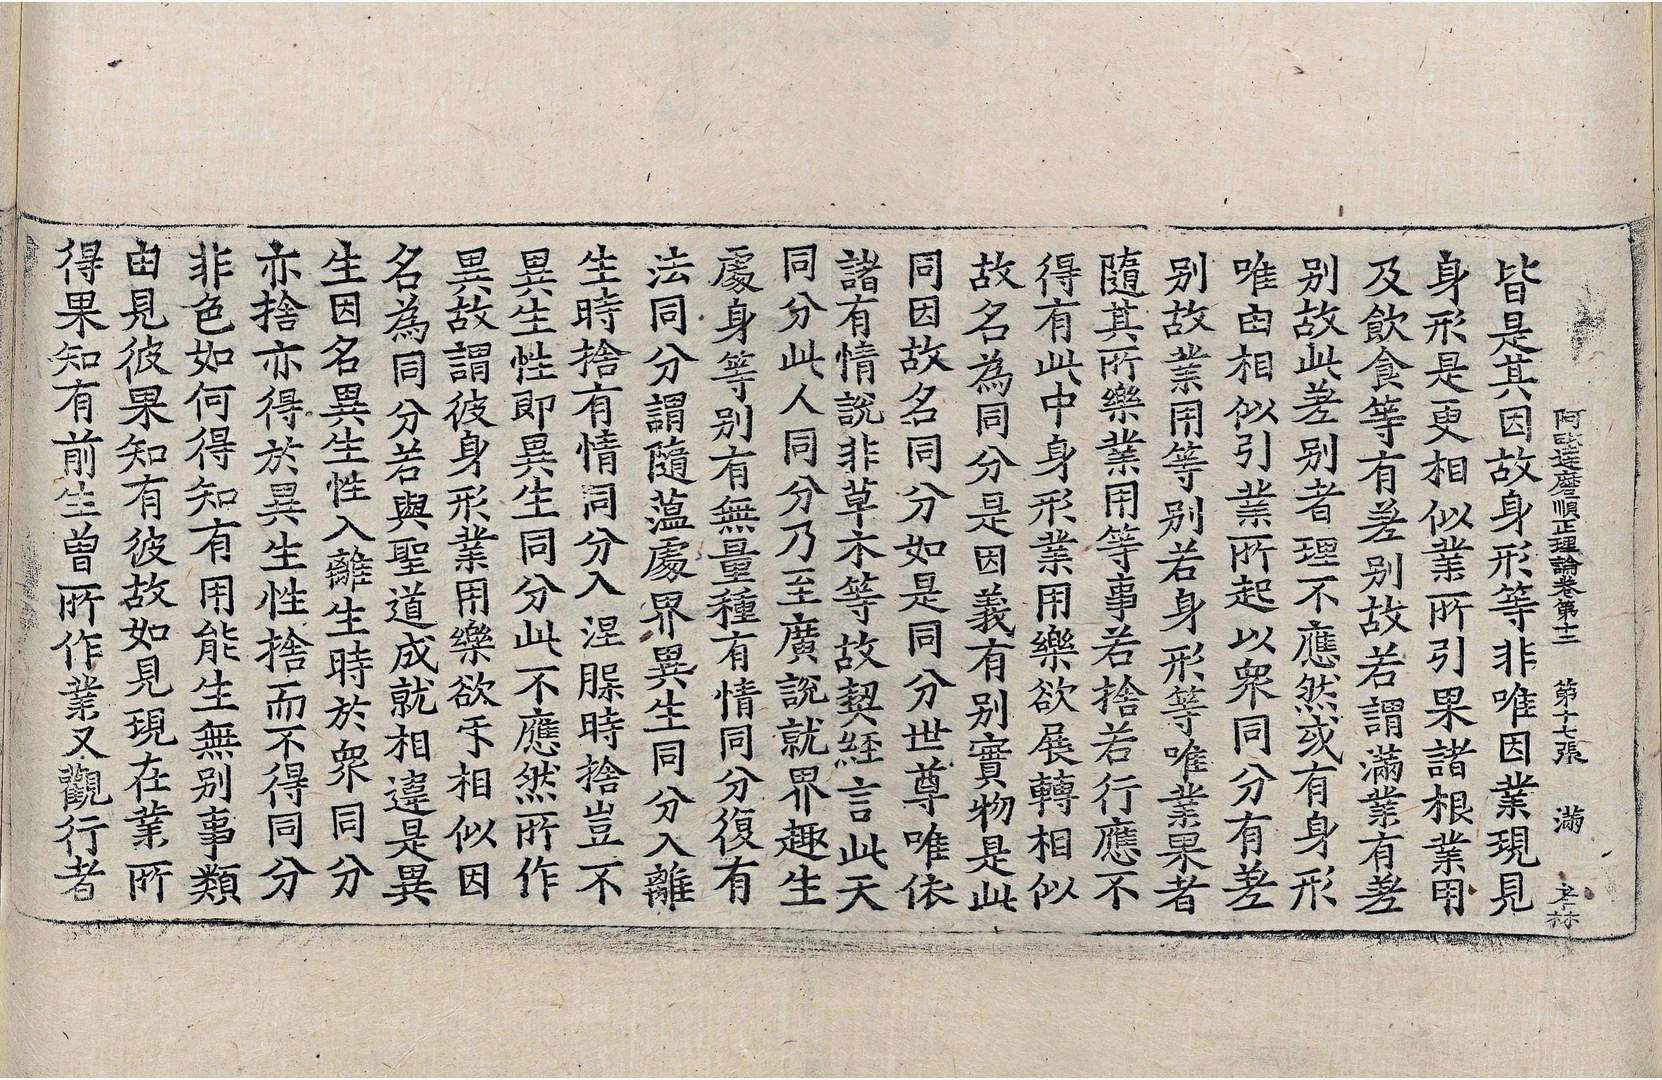 阿毗達磨順正理論卷第十二 第十七張 滿
皆是其因故身形等非唯因業現見
身形是更相似業所引果諸根業用
及飲食等有差別故若謂滿業有差
別故此差別者理不應然或有身形
唯由相似引業所起以衆同分有差
別故業用等別若身形等唯業果者
隨其所樂業用等事若捨若行應不
得有此中身形業用樂欲展轉相似
故名為同分是因義有別實物是此
同因故名同分如是同分世尊唯依
諸有情說非草木等故契經言此天
同分此人同分乃至廣說就界趣生
處身等別有無量種有情同分復有
法同分謂隨蘊處界異生同分入離
生時捨有情同分入涅槃時捨豈不
異生性即異生同分此不應然所作
異故謂彼身形業用樂欲乎相似因
名為同分若與聖道成就相違是異
生因名異生性入離生時於衆同分
亦捨亦得於異生性捨而不得同分
非色如何得知有用能生無別事類
由見彼果知有彼故如見現在業所
得果知有前生曾所作業又觀行者